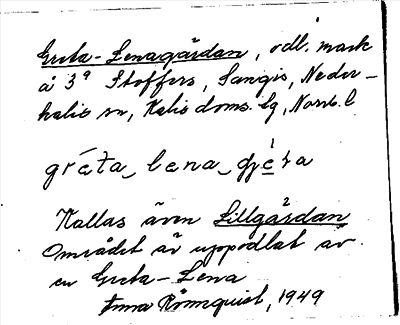 Greta-Lenagårdan, odl. mark
å 3ª Stoffers, Sangis, Neder-
kalix sn, Kalix doms. lg, Norrb. l
gréta_lena_gjẹ́ɩa
Kallas även Lillgårdan
Området är uppodlat av
en Greta-Lena
Anna Rönnquist, 1949